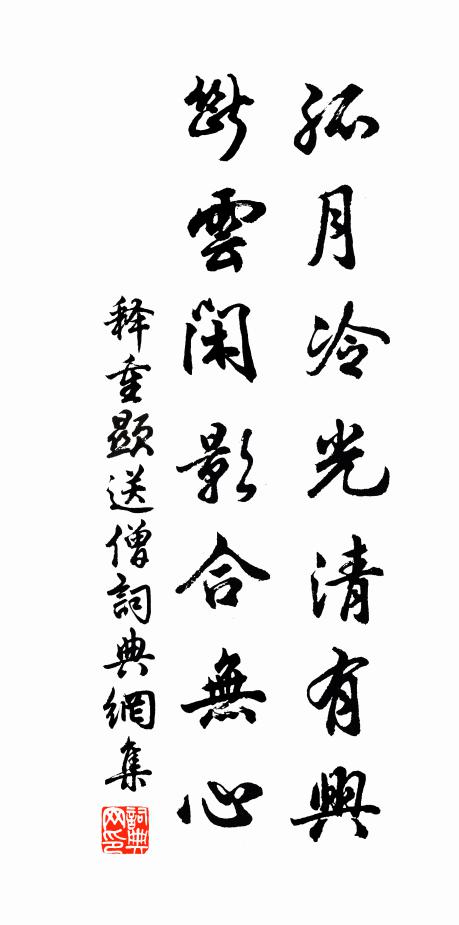 孤月冷光清有興
斷雲閑影合無心
释重顯送僧詞典網集
詞典网印